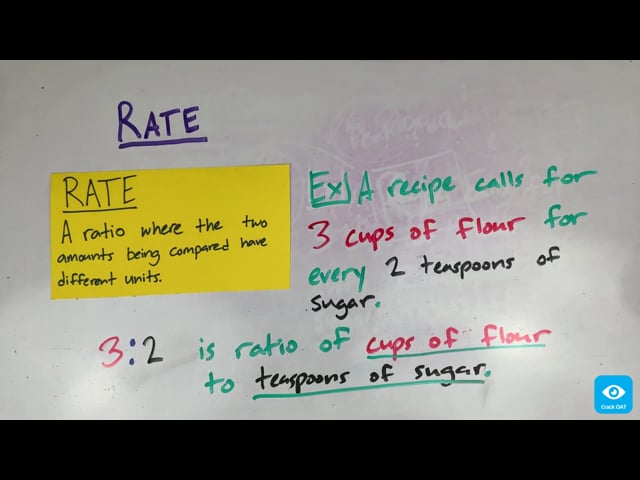 RATE
RATE
A ratio where the two
amounts being compared have
different units.
Ex) A recipe calls for
3 cups of flour for
every 2 teaspoons of
sugar.
3:2 is ratio of cups of flour
to teaspoons of sugar.
Crack OAT